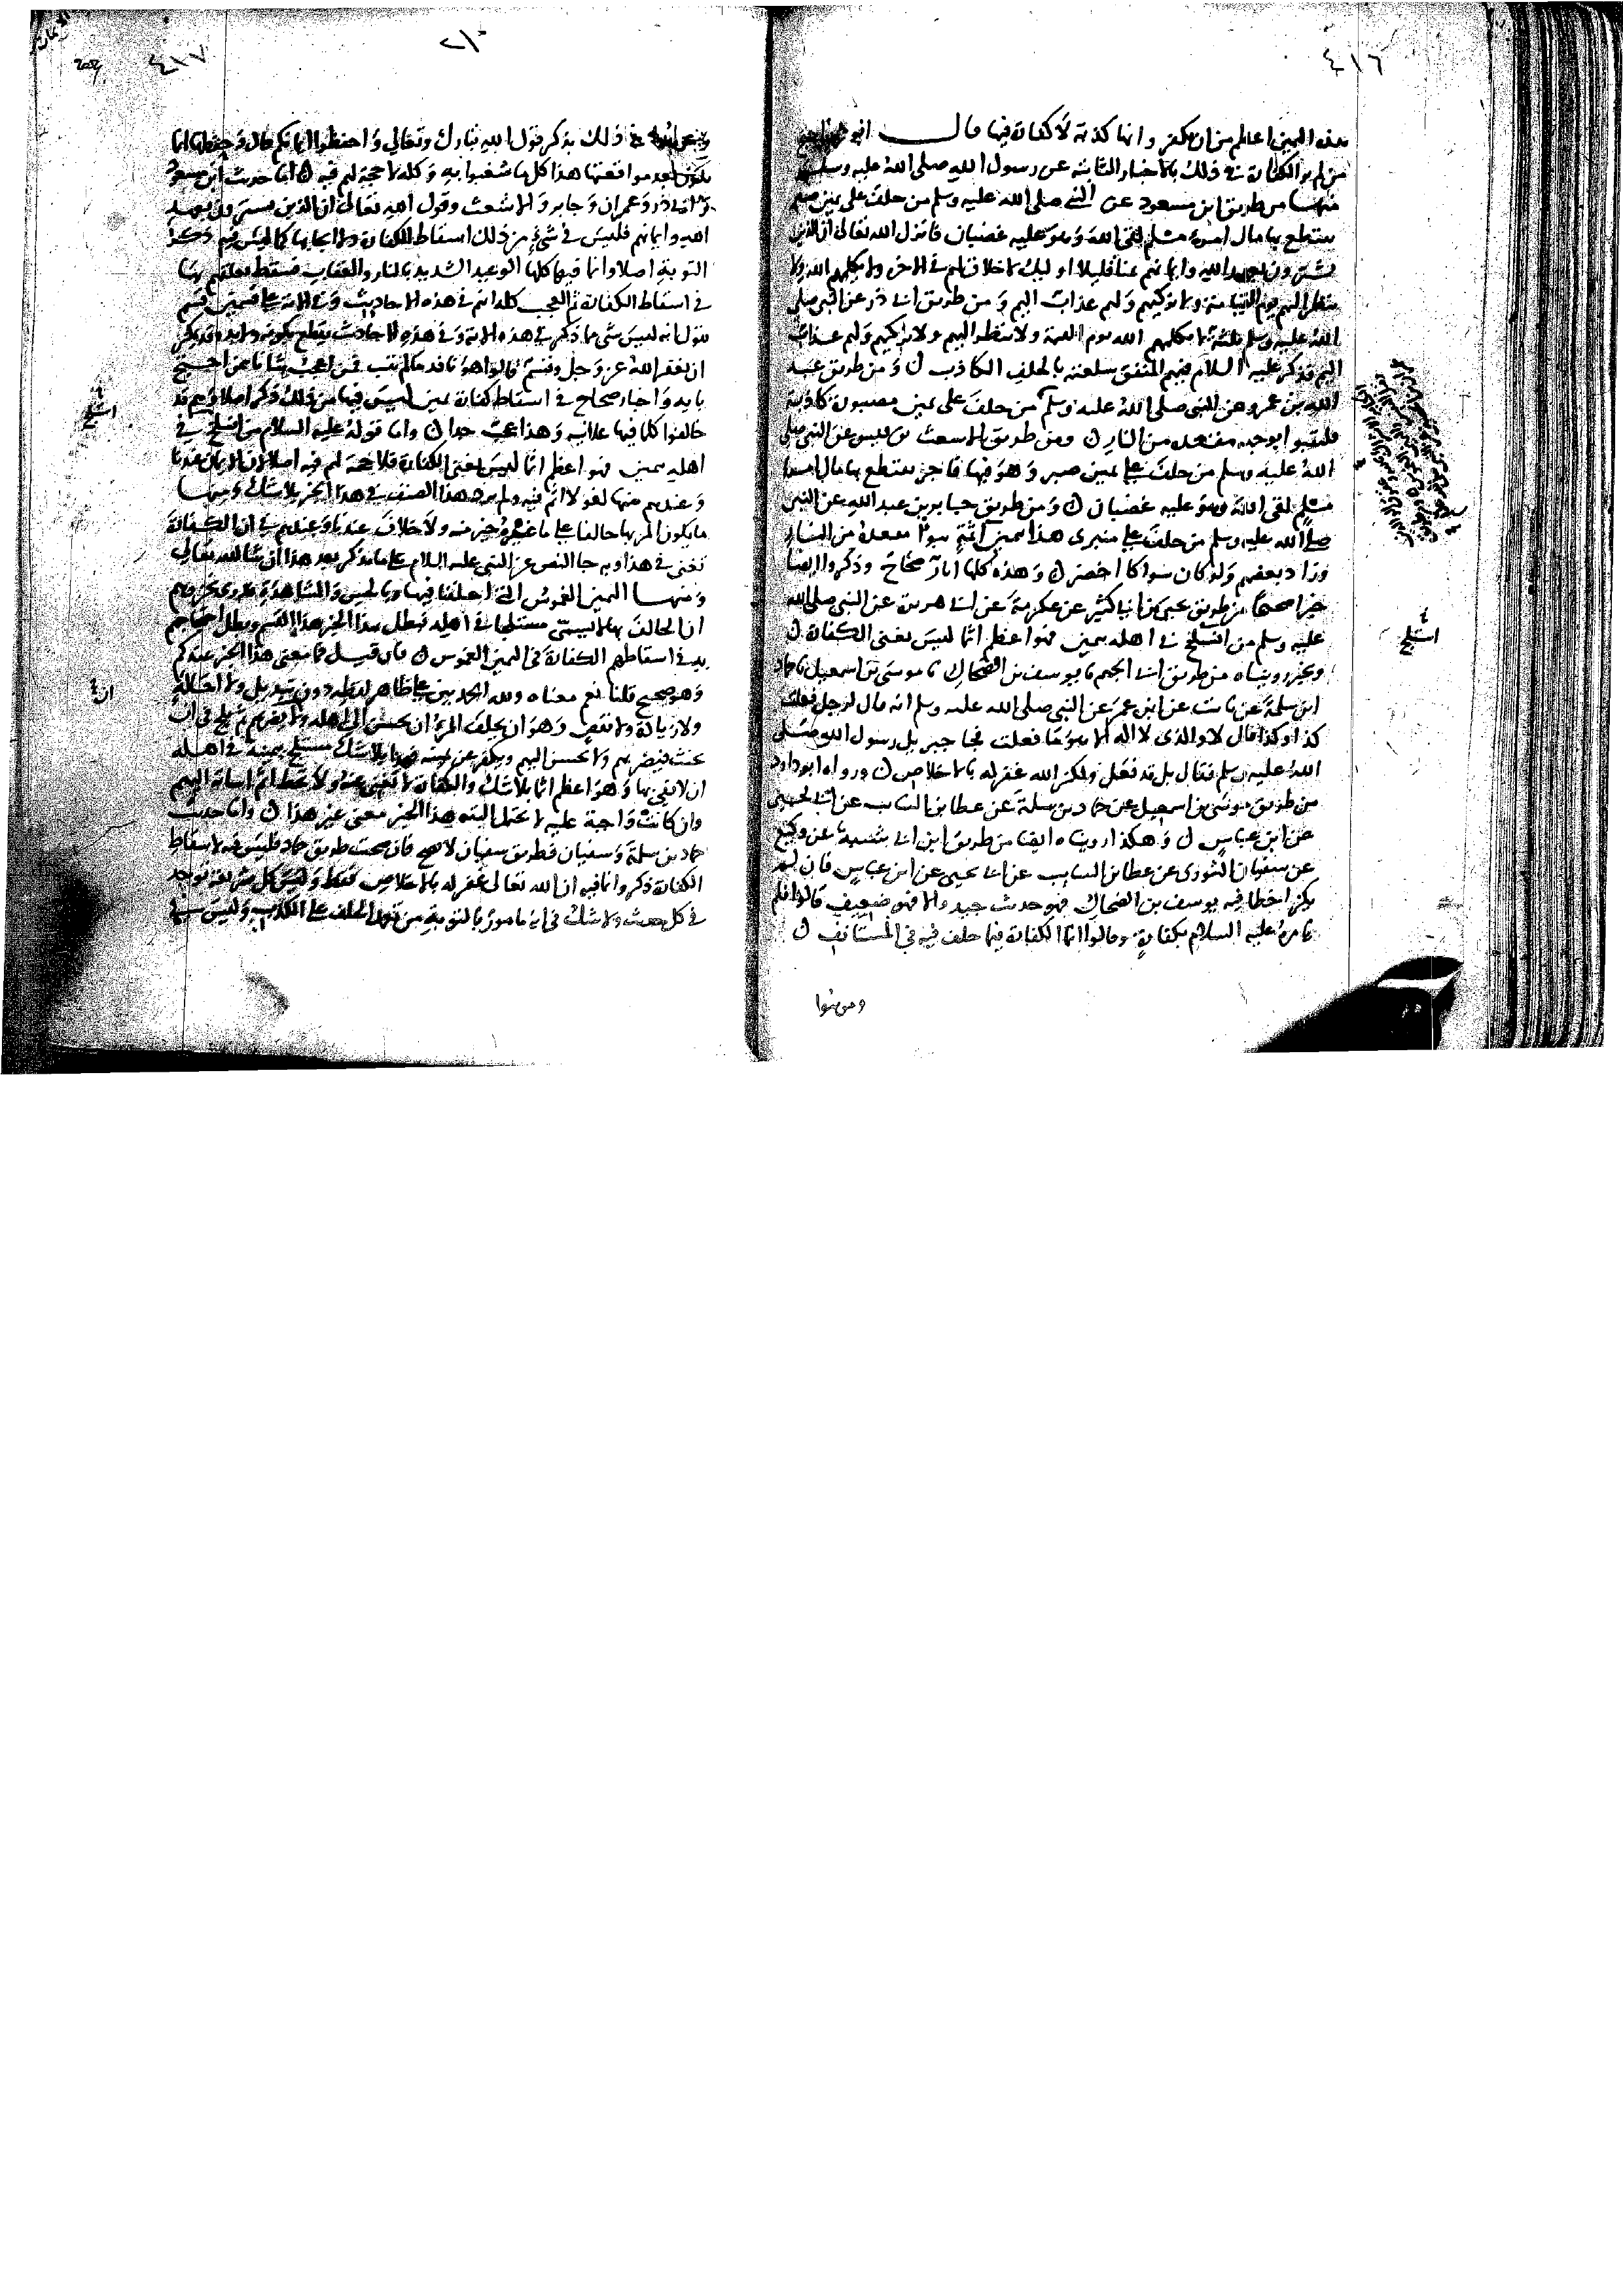 ٤١٦
هذه اليمين اعظم من ان تكفر وانها كذبة لا كفارة فيها قال ابو محمد احتج
من لم ير الكفارة في ذلك بالاخبار الثابتة عن رسول الله صلى الله عليه وسلم
منها من طريق ابن مسعود عن النبي صلى الله عليه وسلم من حلف على يمين صبر
يقتطع بها مال امرئ مسلم لقي الله وهو عليه غضبان فانزل الله تعالى ان الذين
يشترون بعهد الله وايمانهم ثمنا قليلا اوليك لا خلاق لهم في الاخرة ولا يكلمهم الله ولا
ينظر اليهم يوم القيامة ولا يزكيهم ولهم عذاب اليم ومن طريق ابي ذر عن النبي صلى
الله عليه وسلم ثلاثة لا يكلمهم الله يوم القيمة ولا ينظر اليهم ولا يزكيهم ولهم عذاب
اليم فذكر عليه السلام فيهم المنفق سلعته بالحلف الكاذب ن ومن طريق عبد
الله بن عمرو عن النبي صلى الله عليه وسلم من حلف على يمين مصبورة كاذبة
فليتبوا بوجهه مقعده من النار ن ومن طريق الاشعث بن قيس عن النبي صلى
الله عليه وسلم من حلف على يمين صبر وهو فيها فاجر يقتطع بها مال امرئ
مسلم لقي الله وهو عليه غضبان ن ومن طريق جابر بن عبد الله عن النبي
صلى الله عليه وسلم من حلف على منبري هذا بيمين اثمة تبوا مقعده من النار
وزاد بعضهم ولو كان سواكا اخضر ن وهذه كلها اثار صحاح وذكروا ايضا
خبرا صحيحا من طريق يحيى بن ابي كثير عن عكرمة عن ابي هريرة عن النبي صلى الله
عليه وسلم من استلج في اهله بيمين فهو اعظم اثما ليس يغني الكفارة ن
وبخبر رويناه من طريق ابن الجهم نا يوسف بن الضحاك نا موسى بن اسمعيل نا حماد
ابن سلمة عن ثابت عن ابن عمر عن النبي صلى الله عليه وسلم انه قال لرجل فعلت
كذا وكذا قال لا والذي لا اله الا هو ما فعلت فجا جبريل رسول الله صلى
الله عليه وسلم فقال بل قد فعل ولكن الله غفر له بالاخلاص ن ورواه ابو داود
من طريق موسى بن اسمعيل عن حماد بن سلمة عن عطا بن السايب عن ابي يحيى
عن ابن عباس ن وهكذا رويناه ايضا من طريق ابن ابي شيبة عن وكيع
عن سفيان الثوري عن عطا بن السايب عن ابي يحيى عن ابن عباس فان لم
يكن اخطا فيه يوسف بن الضحاك فهو حديث جيد والا فهو ضعيف قالوا فلم
يامره عليه السلام بكفارة وقالوا انما الكفارة فيما حلف فيه في المستانف ن
وموهوا
استلج
٤١٧
٢١٠
في ذلك بذكر قول الله تبارك وتعالى واحفظوا ايمانكم قال وحفظها انما
يكون بعد مواقعتها هذا كل ما شغبوا به وكله لا حجة لهم فيه ن اما حديث ابن مسعود
وابي ذر وعمران وجابر والاشعث وقول الله تعالى ان الذين يشترون بعهد
الله وايمانهم فليس في شيء من ذلك اسقاط الكفارة ولا ايجابها كما ليس فيهم ذكر
التوبة اصلا وانما فيها كلها الوعيد الشديد بالنار والعقاب فسقط تعلقهم بها
في اسقاط الكفارة ثم العجب كله انهم في هذه الاحاديث وفي الاية على قسمين قسم
يقول انه ليس شي مما ذكر في هذه الاية وفي هذه الاحاديث يقطع بكونه ولا بد وقد يمكن
ان يغفر الله عز وجل وقسم قالوا هو نافذ ما لم يتب فمن اعجب شانا ممن احتج
باية واخبار صحاح في اسقاط كفارة يمين ليس فيها من ذلك ذكر اصلا وهم قد
خالفوا كل ما فيها علانية وهذا عجب جدا ن واما قوله عليه السلام من استلج في
اهله بيمين فهو اعظم اثما ليس يغني الكفارة فلا حجة لهم فيه اصلا لان الايمان عندنا
وعندهم منها لغو لا اثم فيه ولم يرد هذا الصنف في هذا الخبر بلا شك ومنها
ما يكون المر بها حالفا على ما غيره خير منه ولا خلاف عندنا وعندهم في ان الكفارة
تغني في هذا وبه جا النص عن النبي عليه السلام على ما نذكر بعد هذا ان شا الله تعالى
ومنها اليمين الغموس التي اختلفنا فيها وبالحس والمشاهدة ندري نحن وهم
ان الحالف بها لا يسمى مستلجا في اهله فبطل بهذا الخبر هذا القسم وبطل احتجاجهم
به في اسقاطهم الكفارة في اليمين الغموس ن فان قيل فما معنى هذا الخبر عندكم
وهو صحيح قلنا نعم معناه ولله الحمد بين على ظاهر لفظه دون تبديل ولا احالة
ولا زيادة ولا نقص وهو ان يحلف المرء ان يحسن الى اهله ولا يضر بهم ثم يلج في ان
يحنث فيضر بهم ولا يحسن اليهم ويكفر عن يمينه فهذا بلا شك مستلج بيمينه في اهله
ان لا يفي بها وهو اعظم اثما بلا شك والكفارة لا تغني عنه ولا تحط اثم اساته اليهم
وان كانت واجبة عليه لا يحتمل البتة هذا الخبر معنى غير هذا ن واما حديث
حماد بن سلمة وسفيان فطريق سفيان لا تصح فان صحت طريق حماد فليس فيه لاسقاط
الكفارة ذكر وانما فيه ان الله تعالى غفر له بالاخلاص فقط وليس كل شريعة توجد
في كل حديث ولا شك في انه مامور بالتوبة من تعمد الحلف على الكذب وليس فيه
استلج
ان